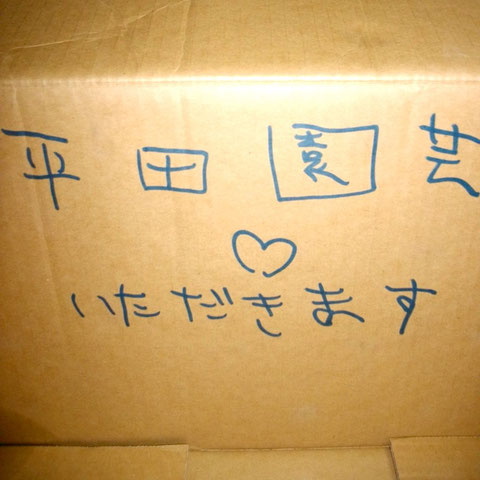 平田園芸
♡
いただきます